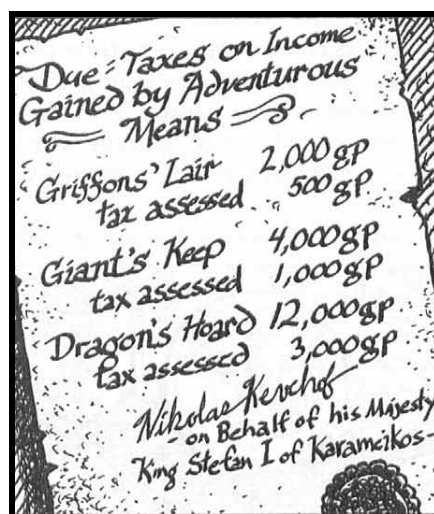 Due: Taxes on Income
Gained by Adventurous
Means
Griffons' Lair 2,000 gp
tax assessed 500 gp
Giant's Keep 4,000 gp
tax assessed 1,000 gp
Dragon's Hoard 12,000 gp
tax assessed 3,000 gp
Nikolas Kerchof
- on Behalf of his Majesty
King Stefan I of Karameikos -